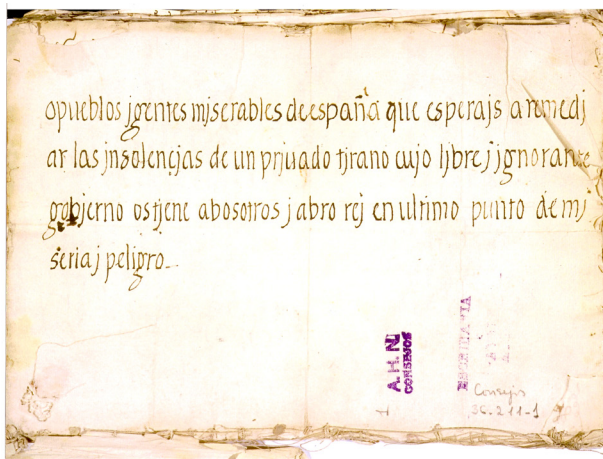 opueblos jgentes mjserables deespaña que esperajs aremedj
ar las jnsolençjas de un prjuado tjrano cujo ljbre j jgnorante
gobjerno ostjene abosotros j abro rej en ultimo punto de mj
seria j peljgro_.
A.H.N
CONSEJOS
Consejos
36.211-1